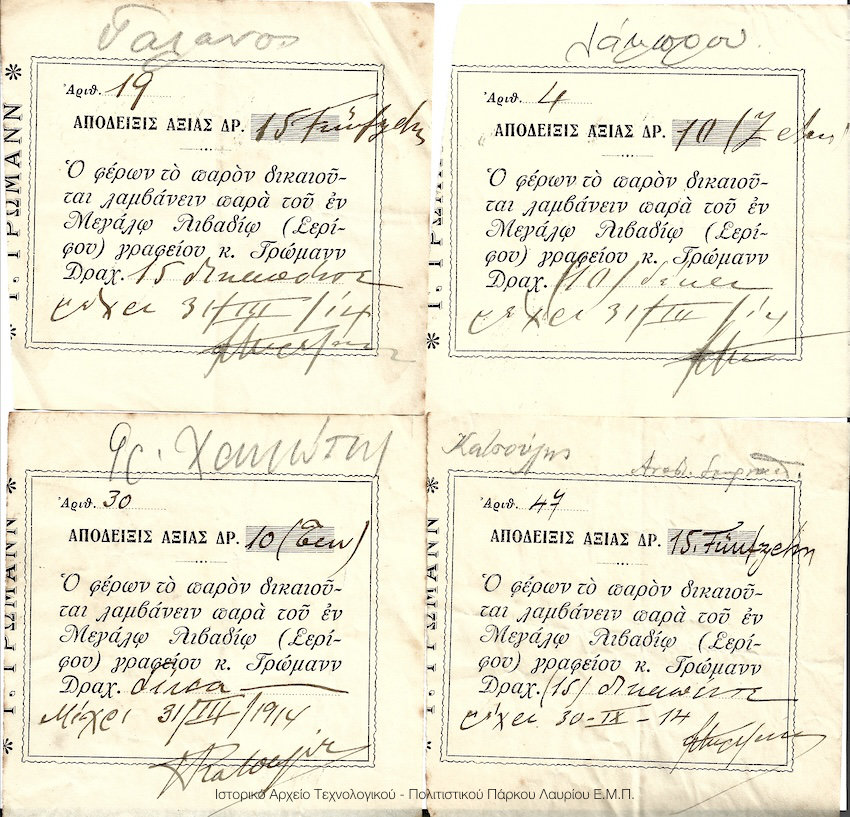 Γαλανος
Γ. ΓΡΩΜΑΝΝ
Ἀριθ. 19
ΑΠΟΔΕΙΞΙΣ ΑΞΙΑΣ ΔΡ. 15 Fünfzehn
Ὁ φέρων τὸ παρὸν δικαιοῦ-
ται λαμβάνειν παρὰ τοῦ ἐν
Μεγάλῳ Λιβαδίῳ (Σερί-
φου) γραφείου κ. Γρώμανν
Δραχ. 15 δεκαπέντε
μέχρι 31/III/14
Λάμπρου
Γ. ΓΡΩΜΑΝΝ
Ἀριθ. 4
ΑΠΟΔΕΙΞΙΣ ΑΞΙΑΣ ΔΡ. 10 (Zehn)
Ὁ φέρων τὸ παρὸν δικαιοῦ-
ται λαμβάνειν παρὰ τοῦ ἐν
Μεγάλῳ Λιβαδίῳ (Σερί-
φου) γραφείου κ. Γρώμανν
Δραχ. (10) δέκα
μέχρι 31/III/14
Γ. ΓΡΩΜΑΝΝ
Ἀριθ. 30
ΑΠΟΔΕΙΞΙΣ ΑΞΙΑΣ ΔΡ. 10 (Ten)
Ὁ φέρων τὸ παρὸν δικαιοῦ-
ται λαμβάνειν παρὰ τοῦ ἐν
Μεγάλῳ Λιβαδίῳ (Σερί-
φου) γραφείου κ. Γρώμανν
Δραχ. δέκα
Μέχρι 31/III/1914
Κατσούλης
Γ. ΓΡΩΜΑΝΝ
Ἀριθ. 47
ΑΠΟΔΕΙΞΙΣ ΑΞΙΑΣ ΔΡ. 15. Fünfzehn
Ὁ φέρων τὸ παρὸν δικαιοῦ-
ται λαμβάνειν παρὰ τοῦ ἐν
Μεγάλῳ Λιβαδίῳ (Σερί-
φου) γραφείου κ. Γρώμανν
Δραχ. (15) δεκαπέντε
μέχρι 30-IX-14
Ιστορικό Αρχείο Τεχνολογικού - Πολιτιστικού Πάρκου Λαυρίου Ε.Μ.Π.